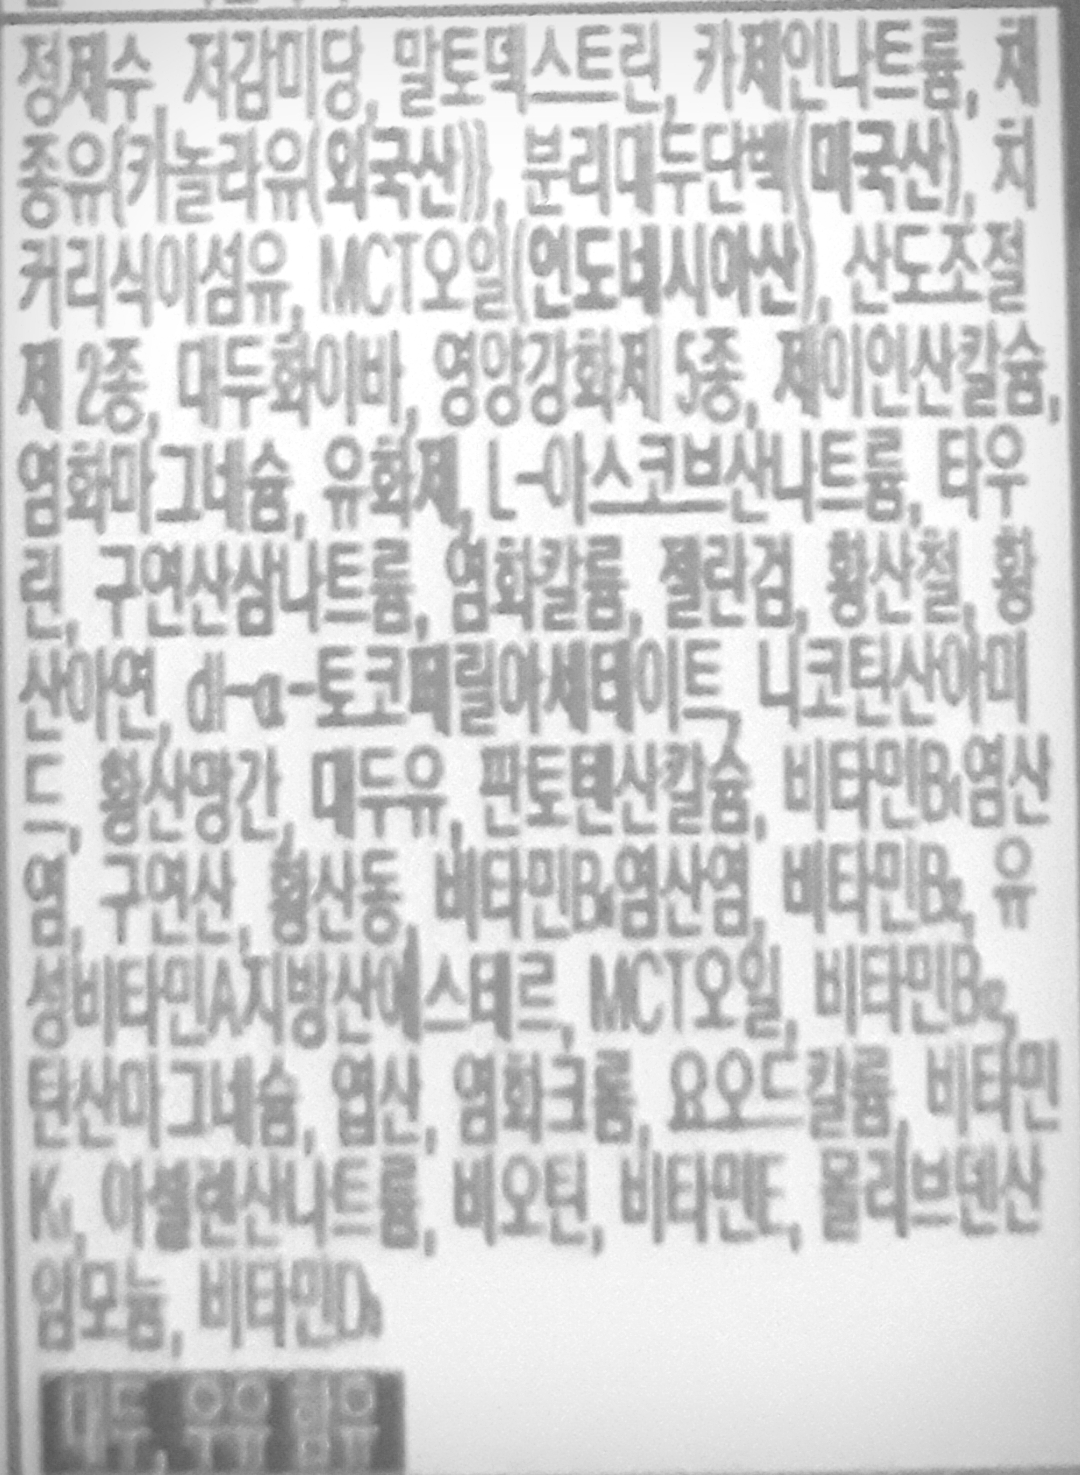 정제수, 저감미당, 말토덱스트린, 카제인나트륨, 채
종유{카놀라유(외국산)}, 분리대두단백(미국산), 치
커리식이섬유, MCT오일(인도네시아산), 산도조절
제 2종, 대두화이바, 영양강화제 5종, 제이인산칼슘,
염화마그네슘, 유화제, L-아스코브산나트륨, 타우
린, 구연산삼나트륨, 염화칼륨, 젤란검, 황산철, 황
산아연, dl-α-토코페릴아세테이트, 니코틴산아미
드, 황산망간, 대두유, 판토텐산칼슘, 비타민B₁염산
염, 구연산, 황산동, 비타민B₆염산염, 비타민B₂, 유
성비타민A지방산에스테르, MCT오일, 비타민B₁₂,
탄산마그네슘, 엽산, 염화크롬, 요오드칼륨, 비타민
K₁, 아셀렌산나트륨, 비오틴, 비타민E, 몰리브덴산
암모늄, 비타민D₃
대두, 우유 함유